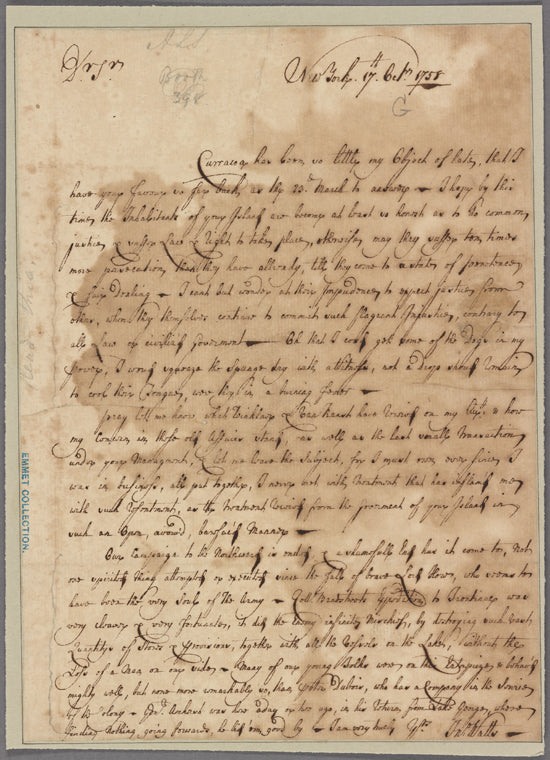 ALS
Booth
398
Dr. Sr.
New York 17th Octr. 1758
G
Curracoa has been so little my Object of late, that I
have your favour so far back, as the 23d March to answer – I hope by this
time the Inhabitants of your Island are become at least so honest as to do common
justice & suffer Law & Right to take place, otherwise may they suffer ten times
more persecution, than they have allready, till they come to a state of penitence
& fair Dealing – I cant but wonder at their Impudence to expect justice from
others, when they themselves continue to commit such flagrant Injustice, contrary to
all Law or civilised government – Oh that I could get some of the Dogs in my
power, I would squeeze the Spunge dry with a witness, not a drop should remain
to cool their Tongues, were they in a burning fever –
pray let me know, what & Van have on my & how
my Concerns in those old affairs stand, as well as the last Transaction
under your Management, let me leave the Subject, for I must own ever since I
was in business, all put together, I never met with Treatment that has me
with such Resentment, as the Treatment from the government of your Island in
such an Open, avowed, barefaced Manner –
Our Campaign to the Northward is ended, & a shamefull has it come to, Not
one spirited thing attempted or executed since the fall of brave Lord How, who seems to
have been the very Soul of the Army – Coll. Bradstreets Expedition to was
very clever & very fortunate, it did the Enemy infinite Mischief, by destroying such vast
Quantitys of Stores & provisions, together with all the Vessels on the Lake, without the
Loss of a Man on our side – Many of our young Folks were on this Enterprize & behaved
mighty well, but none more remarkably so, than Peter Dubois, who has a Company in the Service
of the Colony – Genl. Amherst was here a day or two ago, in his Return from Lake George, where
finding Nothing going forward, he bid em good by – I am very truly Yrs. Jno. Watts –
EMMET COLLECTION.